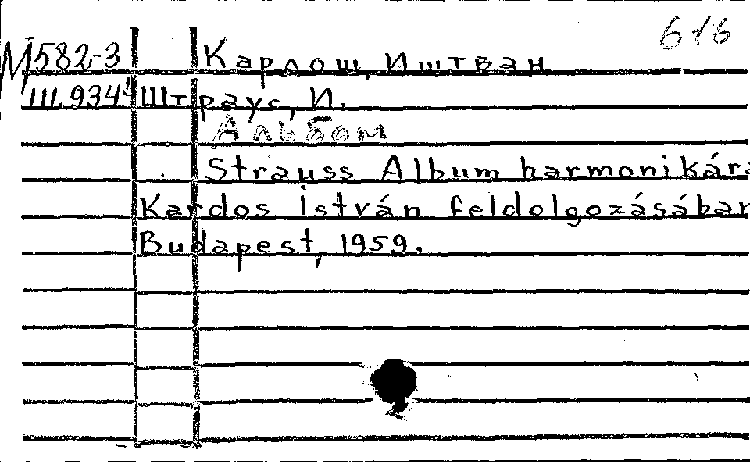 616
М582-3 Карлош, Иштван
Ш.934⁴ Штраус, И.
Альбом
Strauss Album harmonikára
Kardos István feldolgozásában
Budapest, 1959.